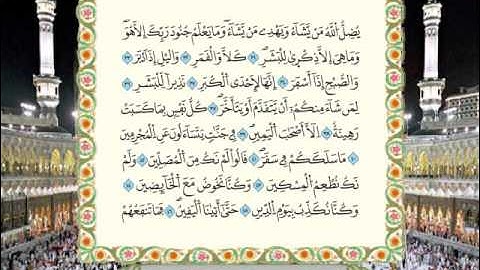 يُضِلُّ ٱللَّهُ مَن يَشَآءُ وَيَهۡدِي مَن يَشَآءُۚ وَمَا يَعۡلَمُ جُنُودَ رَبِّكَ إِلَّا هُوَۚ
وَمَا هِيَ إِلَّا ذِكۡرَىٰ لِلۡبَشَرِ ٣١ كَلَّا وَٱلۡقَمَرِ ٣٢ وَٱلَّيۡلِ إِذۡ أَدۡبَرَ ٣٣
وَٱلصُّبۡحِ إِذَآ أَسۡفَرَ ٣٤ إِنَّهَا لَإِحۡدَى ٱلۡكُبَرِ ٣٥ نَذِيرٗا لِّلۡبَشَرِ ٣٦
لِمَن شَآءَ مِنكُمۡ أَن يَتَقَدَّمَ أَوۡ يَتَأَخَّرَ ٣٧ كُلُّ نَفۡسِۭ بِمَا كَسَبَتۡ
رَهِينَةٌ ٣٨ إِلَّآ أَصۡحَٰبَ ٱلۡيَمِينِ ٣٩ فِي جَنَّٰتٖ يَتَسَآءَلُونَ ٤٠ عَنِ ٱلۡمُجۡرِمِينَ
٤١ مَا سَلَكَكُمۡ فِي سَقَرَ ٤٢ قَالُواْ لَمۡ نَكُ مِنَ ٱلۡمُصَلِّينَ ٤٣ وَلَمۡ
نَكُ نُطۡعِمُ ٱلۡمِسۡكِينَ ٤٤ وَكُنَّا نَخُوضُ مَعَ ٱلۡخَآئِضِينَ ٤٥
وَكُنَّا نُكَذِّبُ بِيَوۡمِ ٱلدِّينِ ٤٦ حَتَّىٰٓ أَتَىٰنَا ٱلۡيَقِينُ ٤٧ فَمَا تَنفَعُهُمۡ